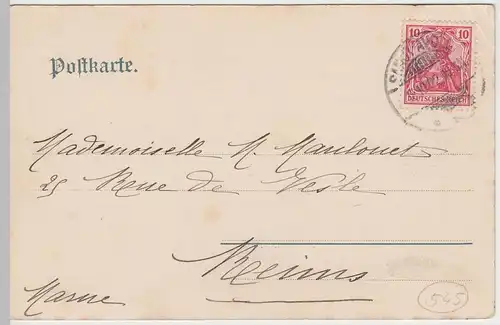 Postkarte.
10 10
DEUTSCHES REICH
Mademoiselle M. Maulouet
25 Rue de Vesle
Reims
Marne
545